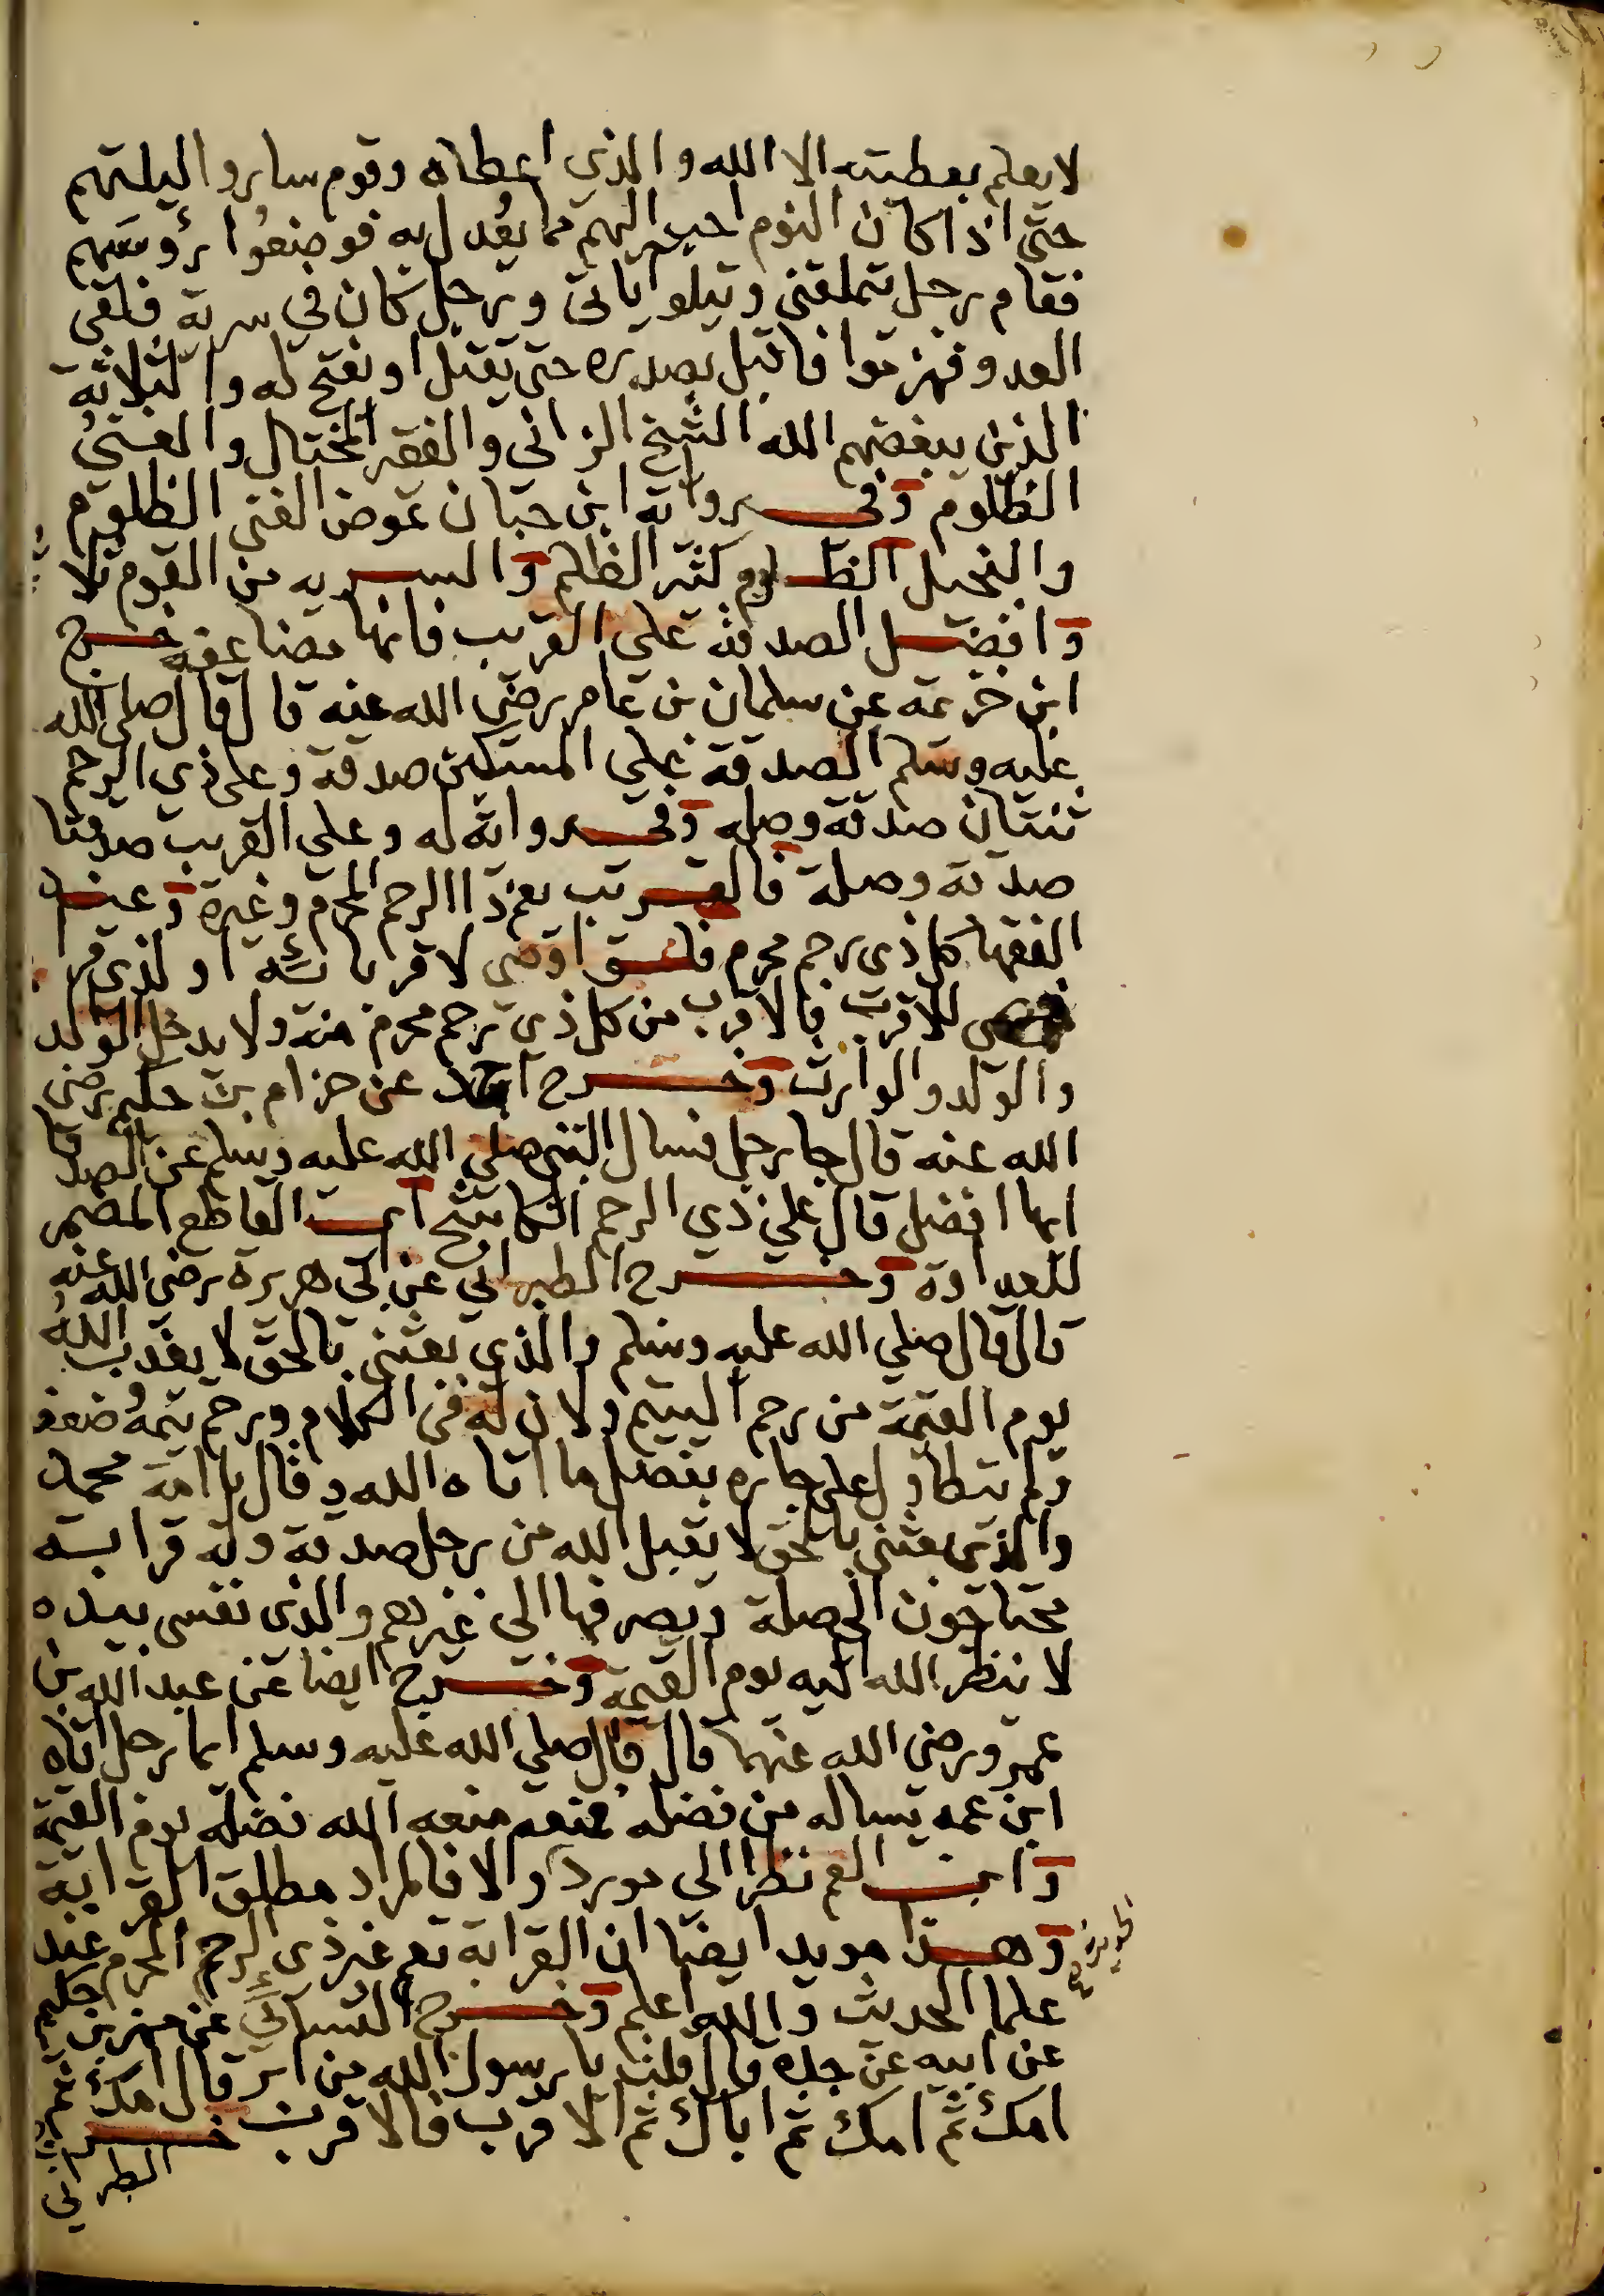 لا يعلم بعطيته الا الله والذي اعطاه وقوم ساروا ليلتهم
حتى اذا كان النوم احب اليهم مما يعدل به فوضعوا رؤوسهم
فقام رجل يتملقني ويتلو اياتي ورجل كان في سرية فلقي
العدو فهزموا فاقبل بصدره حتى يقتل او يفتح له والثلاثة
الذين يبغضهم الله الشيخ الزاني والفقير المختال والغني
الظلوم وفي رواية ابن حبان عوض الغني الظلوم
والبخيل الظلوم كثير الظلم والسرية من القوم
وافضل الصدقة على القريب فانها مضاعفة خرج
ابن خزيمة عن سلمان بن عامر رضي الله عنه قال قال صلى الله
عليه وسلم الصدقة على المسكين صدقة وعلى ذي الرحم
ثنتان صدقة وصلة وفي رواية له وعلى القريب صدقتا
صدقة وصلة فالقريب يعم ذا الرحم المحرم وغيره وعند
الفقها كل ذي رحم محرم اوصى لاقربائه او لذي قر
للاقرب فالاقرب من كل ذي رحم محرم منه ولا يدخل الولد
والولد والوارث وخرج احمد عن حزام بن حكيم رضي
الله عنه قال جا رجل فسال النبي صلى الله عليه وسلم عن الصدقا
ايها افضل قال على ذي الرحم الكاشح اي القاطع المضمر
للعداوة وخرج الطبراني عن ابي هريرة رضي الله عنه
قال قال صلى الله عليه وسلم والذي بعثني بالحق لا يعذب الله
يوم القيمة من رحم اليتيم ولان له في الكلام ورحم يتمه وضعفه
ولم يتطاول على جاره بفضل ما اتاه الله وقال يا امة محمد
والذي بعثني بالحق لا يقبل الله من رجل صدقة وله قرابة
محتاجون الى صلة ويصرفها الى غيرهم والذي نفسي بيده
لا ينظر الله اليه يوم القيمة وخرج ايضا عن عبد الله بن
عمرو رضي الله عنهما قال قال صلى الله عليه وسلم ايما رجل اتاه
ابن عمه يساله من فضله فمنعه منعه الله فضله يوم القيمة
وابن العم نظرا الى مورد والا فالمراد مطلق القرابة
وهذا مويد ايضا ان القرابة تعم غير ذي الرحم المحرم عند
علما الحديث والله اعلم وخرج النسائي عن بهز بن حكيم
عن ابيه عن جده قال قلت يا رسول الله من ابر قال امك ثم
امك ثم امك ثم اباك ثم الاقرب فالاقرب خرج
الطبراني